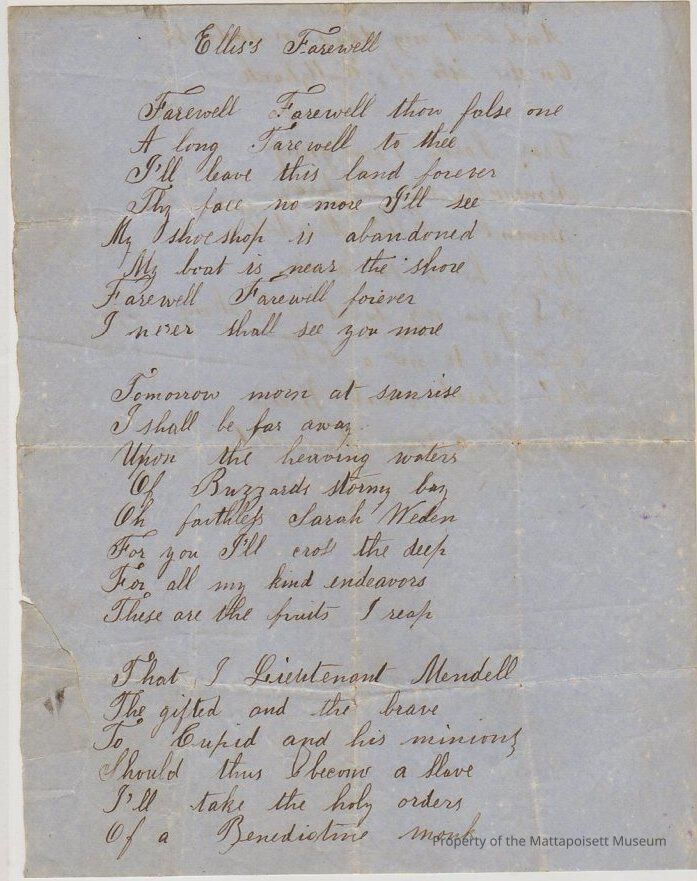 Ellis's Farewell
Farewell Farewell thou false one
A long Farewell to thee
I'll leave this land forever
Thy face no more I'll see
My shoeshop is abandoned
My boat is near the shore
Farewell Farewell forever
I never shall see you more
Tomorrow morn at sunrise
I shall be far away
Upon the heaving waters
Of Buzzards stormy bay
Oh faithless Sarah Weden
For you I'll cross the deep
For all my kind endeavors
These are the fruits I reap
That I Lieutenant Mendell
The gifted and the brave
To Cupid and his minions
Should thus become a slave
I'll take the holy orders
Of a Benedictine monk
Property of the Mattapoisett Museum